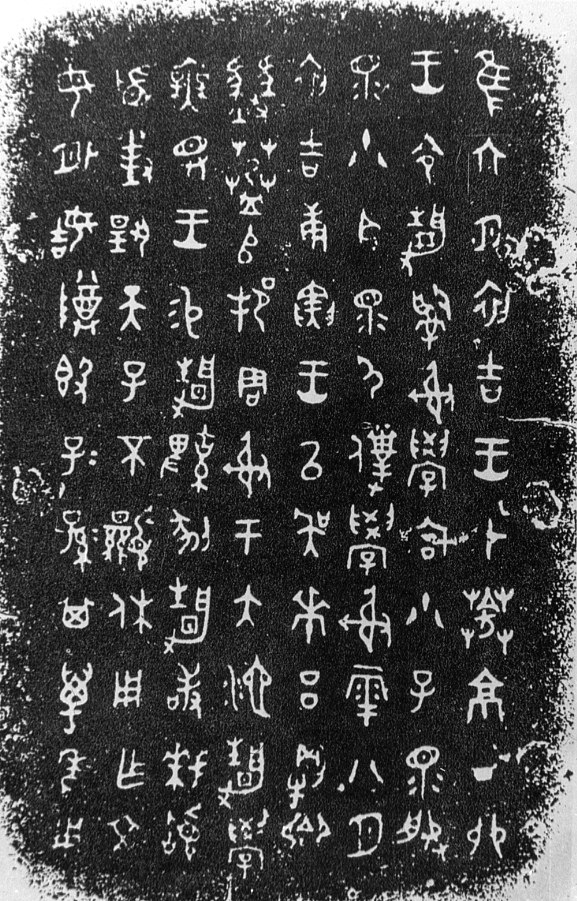 隹六月初吉王才䒤京丁卯
王令靜𤔲射學宮小子眔服
眔小臣眔尸僕學射雩八月
初吉庚寅王以吳𠦪呂剛卿
豳䒤𠂤邦周射于大池靜學
無斁王易靜鞞剢靜敢拜𩒨
首對揚天子不顯休用乍文
母外姞尊簋子=孫=其萬年用